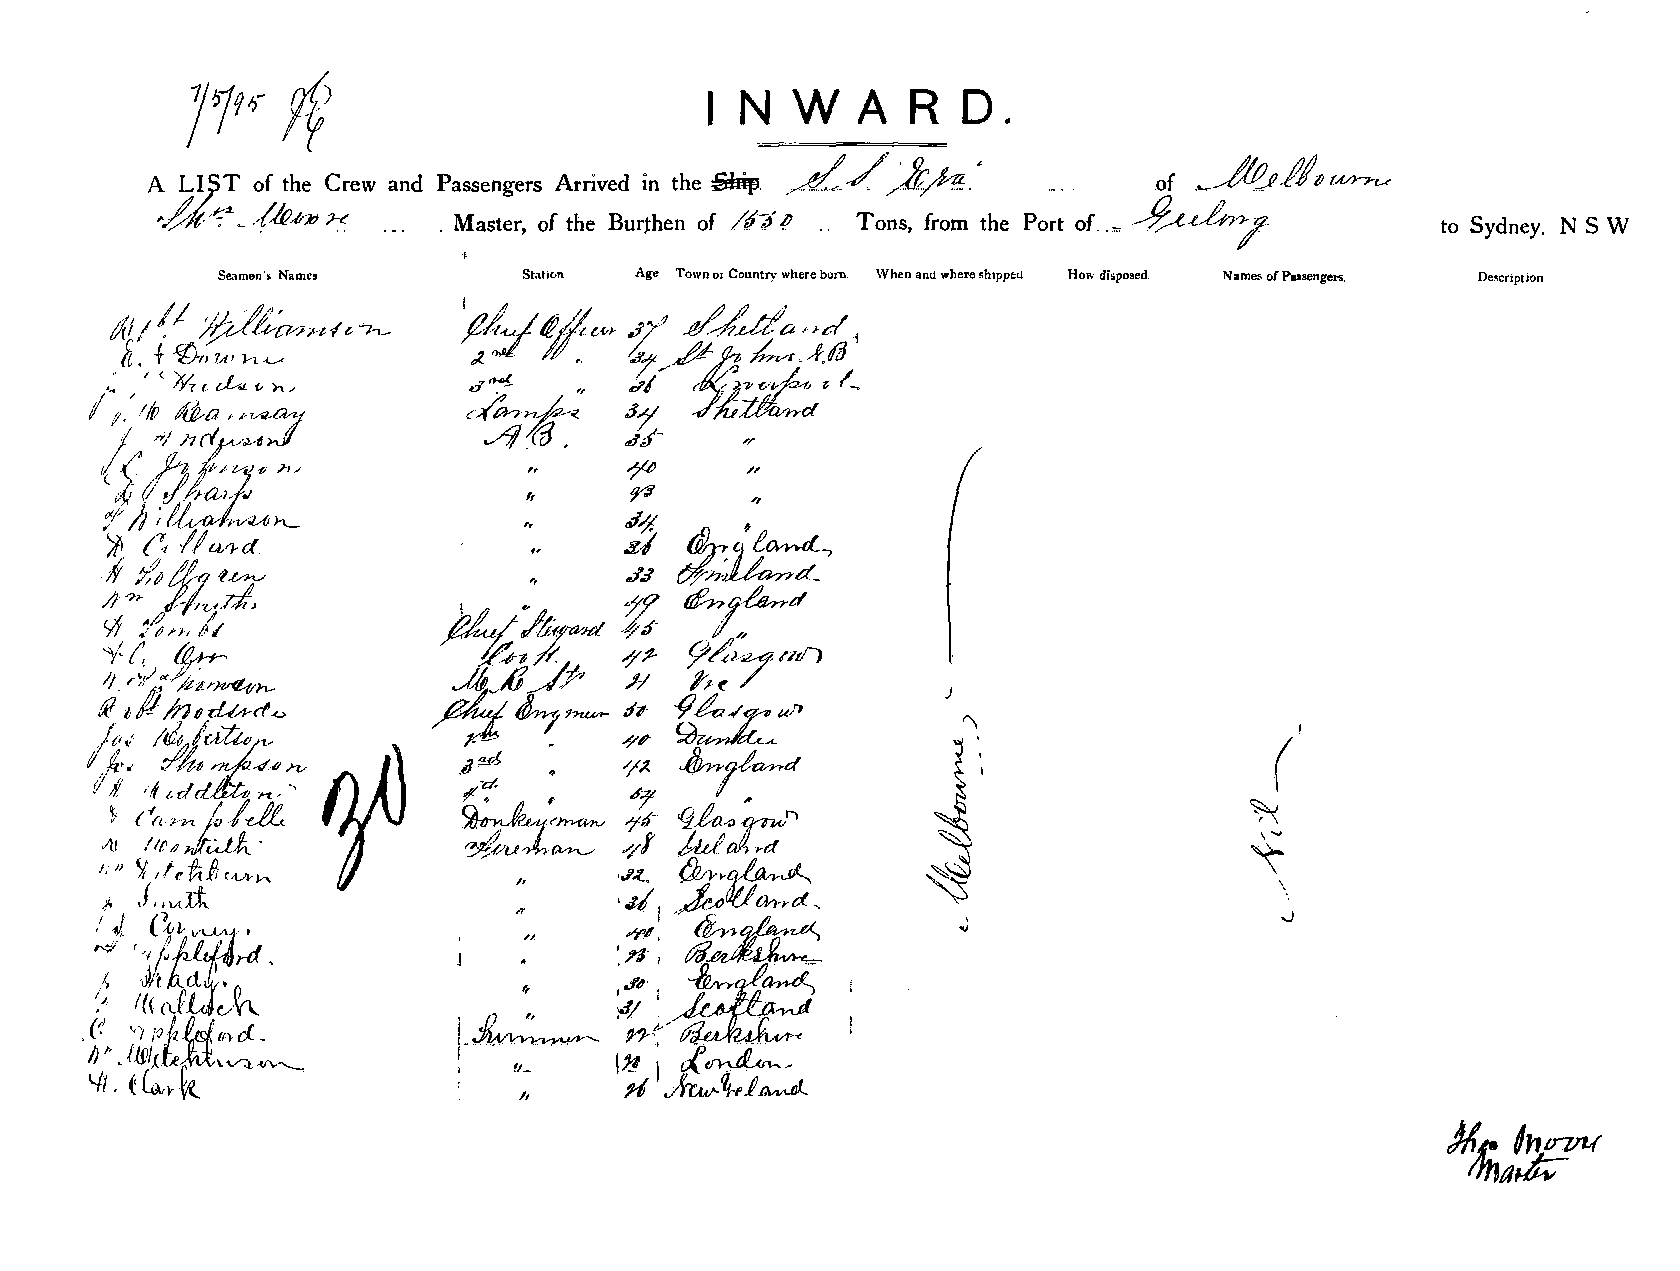 7/5/95
INWARD.
A LIST of the Crew and Passengers Arrived in the Ship S.S. "Era" of Melbourne
Thos. Moore Master, of the Burthen of 1550 Tons, from the Port of Geelong to Sydney. N S W
Seamen's Names Station Age Town or Country where born. When and where shipped How disposed. Names of Passengers. Description
Robt Williamson Chief Officer 37 Shetland
Downe 2nd " 34 St Johns N.B
Hudson 3rd " 26 Liverpool
Ramsay Lamps 34 Shetland
J Anderson A B. 35 "
Johnson " 40 "
Sharp " "
Williamson " 34 "
" 26 England
" 33 Finland
Wm Smith " 49 England
Chief Steward 45 "
Orr Cook 42 Glasgow
Thomson M. R. St 21 Vic
Robt Chief Engineer 50 Glasgow
Jas Robertson 2nd " 40 Dundee
Jas Thompson 3rd " 42 England
Middleton 4th " "
Campbelle Donkeyman 45 Glasgow
Monteith Fireman 48 Ireland
Hitchburn " 32 England
Smith " 36 Scotland
" 40 England
Appleford. " 23 Berkshire
" 30 England
" 31 Scotland
C Appleford. Trimmer 22 Berkshire
" London
H. Clark " 26 New Zeland
30
Melbourne
Nil
Thos Moore
Master